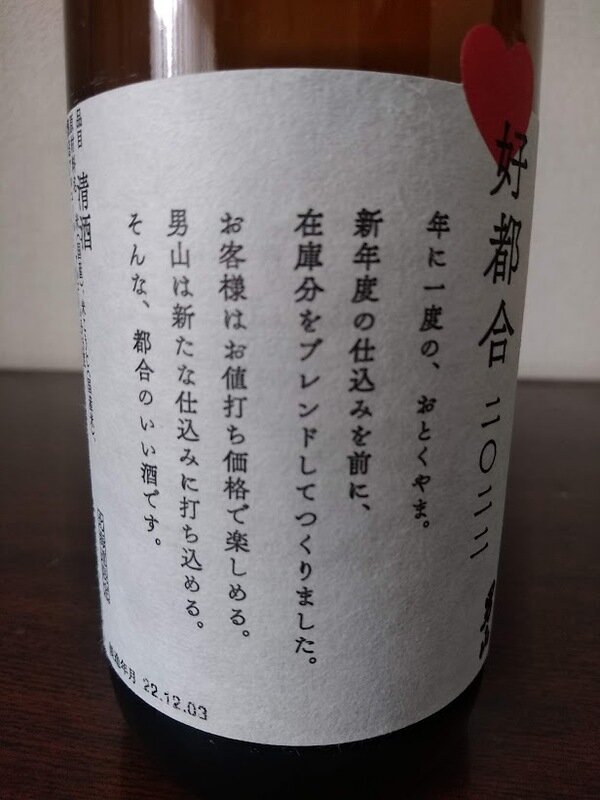 好都合 二〇二二
年に一度の、おとくやま。
新年度の仕込みを前に、
在庫分をブレンドしてつくりました。
お客様はお値打ち価格で楽しめる。
男山は新たな仕込みに打ち込める。
そんな、都合のいい酒です。
品目 清酒
製造年月 22.12.03